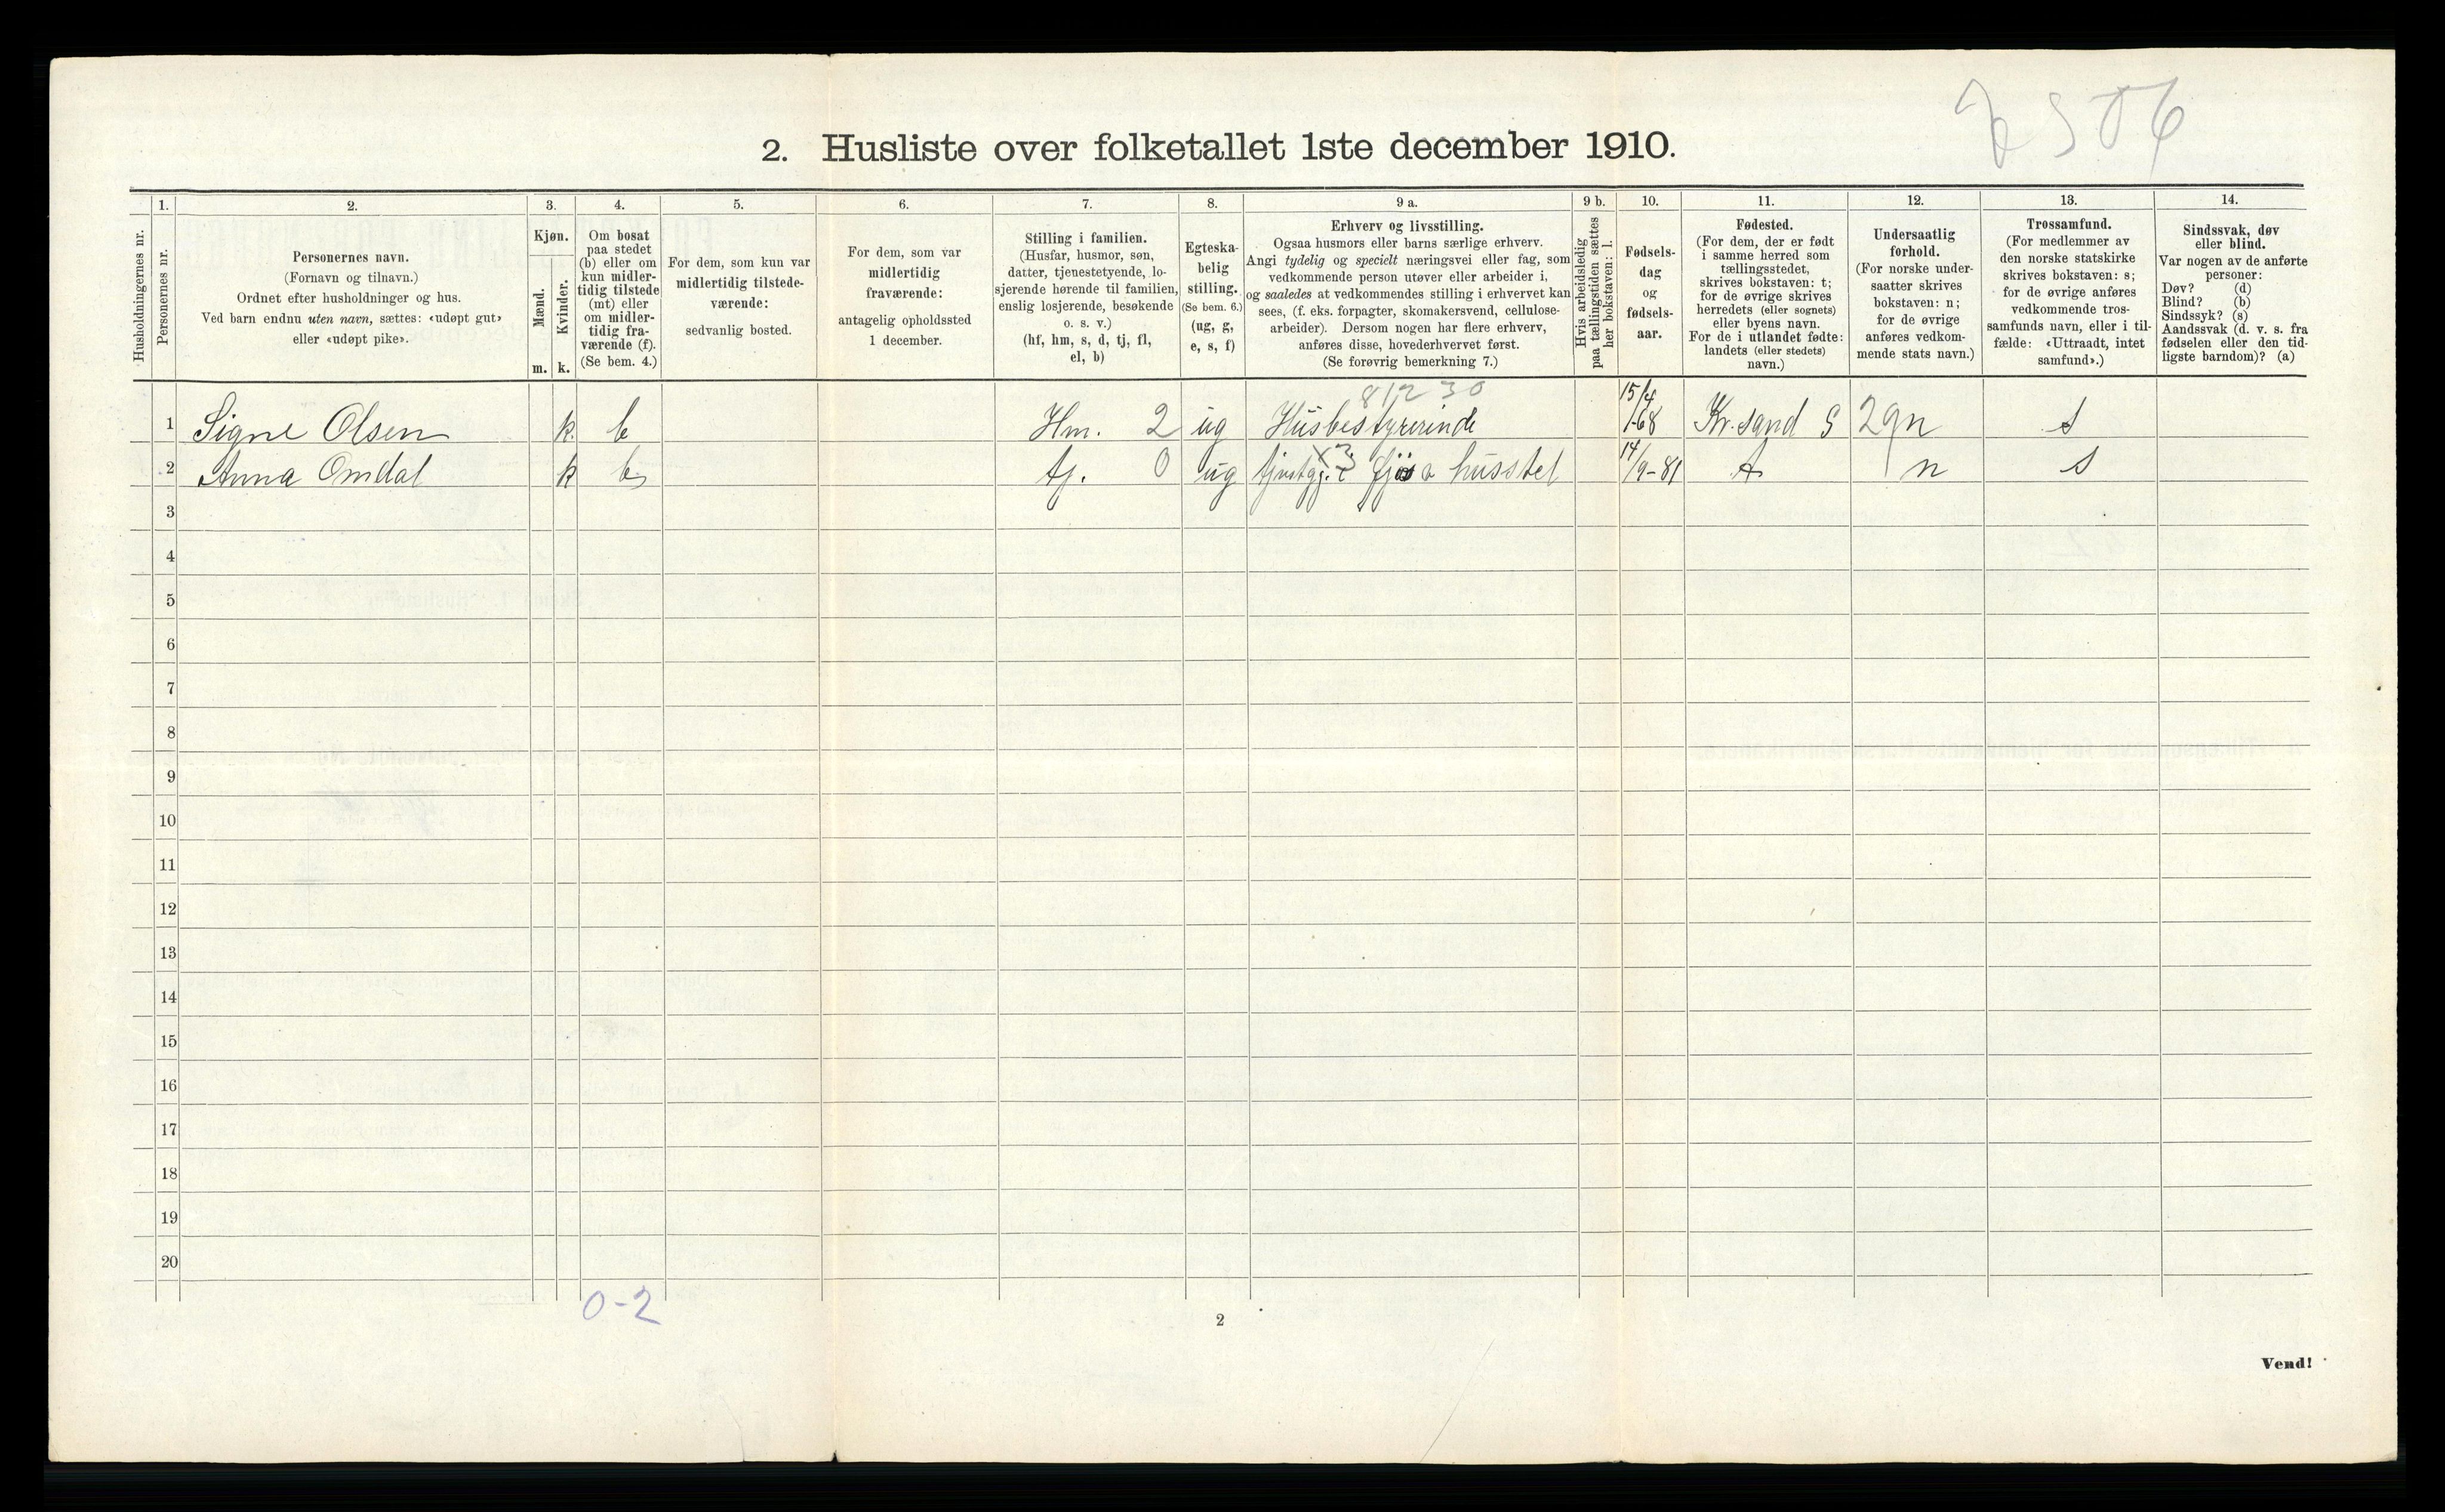 2506
2. Husliste over folketallet 1ste december 1910.
1. 2. 3. 4. 5. 6. 7. 8. 9 a. 9 b. 10. 11. 12. 13. 14.
Husholdningernes nr.
Personernes nr.
Personernes navn.
(Fornavn og tilnavn.)
Ordnet efter husholdninger og hus.
Ved barn endnu uten navn, sættes: «udøpt gut»
eller «udøpt pike».
Kjøn.
Mænd.
Kvinder.
m. k.
Om bosat
paa stedet
(b) eller om
kun midler-
tidig tilstede
(mt) eller
om midler-
tidig fra-
værende (f).
(Se bem. 4.)
For dem, som kun var
midlertidig tilstede-
værende:
sedvanlig bosted.
For dem, som var
midlertidig
fraværende:
antagelig opholdssted
1 december.
Stilling i familien.
(Husfar, husmor, søn,
datter, tjenestetyende, lo-
sjerende hørende til familien,
enslig losjerende, besøkende
o. s. v.)
(hf, hm, s, d, tj, fl,
el, b)
Egteska-
belig
stilling.
(Se bem. 6.)
(ug, g,
e, s, f)
Erhverv og livsstilling.
Ogsaa husmors eller barns særlige erhverv.
Angi tydelig og specielt næringsvei eller fag, som
vedkommende person utøver eller arbeider i,
og saaledes at vedkommendes stilling i erhvervet kan
sees, (f. eks. forpagter, skomakersvend, cellulose-
arbeider). Dersom nogen har flere erhverv,
anføres disse, hovederhvervet først.
(Se forøvrig bemerkning 7.)
Hvis arbeidsledig
paa tællingstiden sættes
her bokstaven: l.
Fødsels-
dag
og
fødsels-
aar.
Fødested.
(For dem, der er født
i samme herred som
tællingsstedet,
skrives bokstaven: t;
for de øvrige skrives
herredets (eller sognets)
eller byens navn.
For de i utlandet fødte:
landets (eller stedets)
navn.)
Undersaatlig
forhold.
(For norske under-
saatter skrives
bokstaven: n;
for de øvrige
anføres vedkom-
mende stats navn.)
Trossamfund.
(For medlemmer av
den norske statskirke
skrives bokstaven: s;
for de øvrige anføres
vedkommende tros-
samfunds navn, eller i til-
fælde: «Uttraadt, intet
samfund».)
Sindssvak, døv
eller blind.
Var nogen av de anførte
personer:
Døv? (d)
Blind? (b)
Sindssyk? (s)
Aandssvak (d. v. s. fra
fødselen eller den tid-
ligste barndom)? (a)
81,2 30
1 Signe Olsen k. b Hm. 2 ug Husbestyrerinde 15/4 1-68 Kr.sand S 29 n s
x 3
2 Anna Omdal k b tj. 0 ug fjøs o husstel 14/9-81 t n s
3
4
5
6
7
8
9
10
11
12
13
14
15
16
17
18
19
20
0-2
2
Vend!